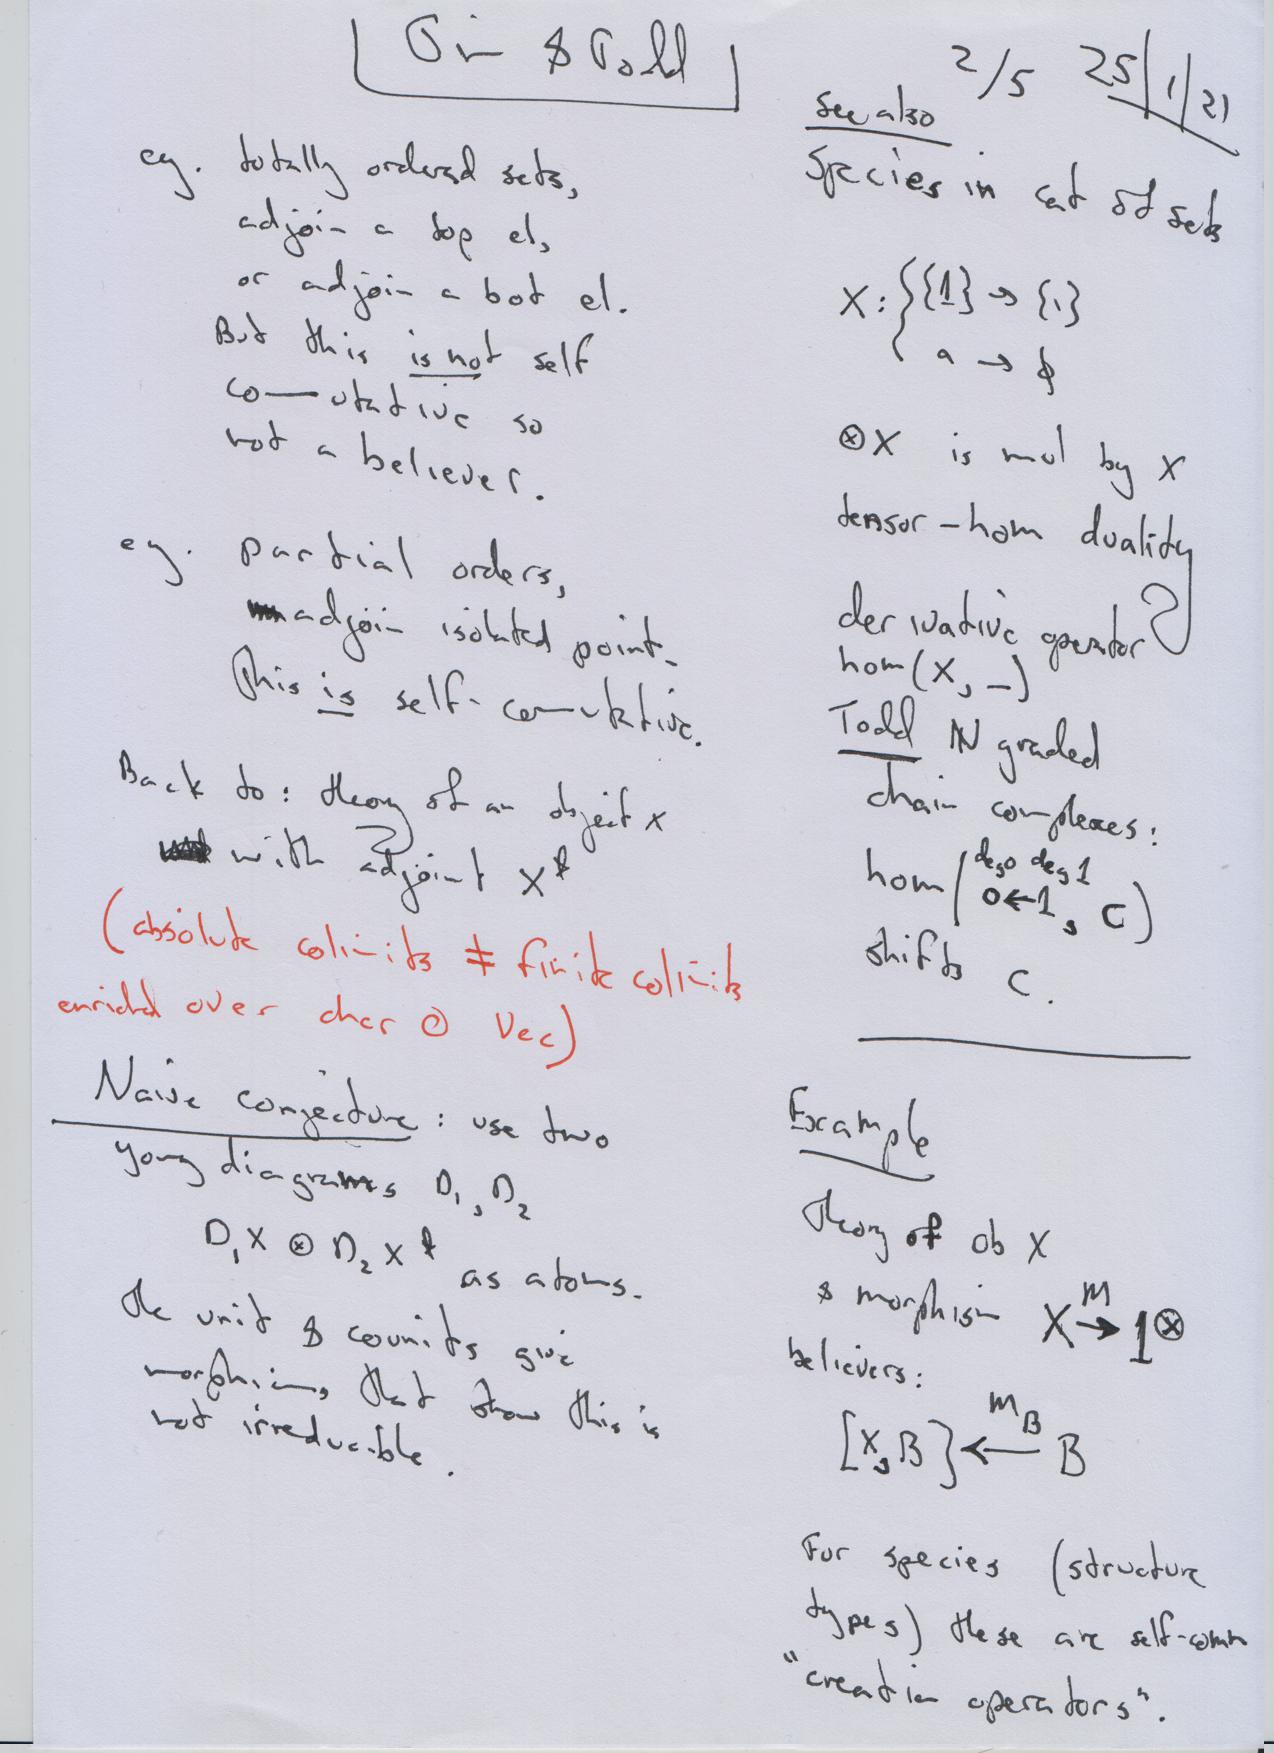 Jim & Todd
2/5 25/1/21
eg. totally ordered sets,
adjoin a top el,
or adjoin a bot el.
But this is not self
commutative so
not a believer.
eg. partial orders,
adjoin isolated point.
This is self-commutative.
Back to: theory of an object x
with adjoint X*
(absolute colimits ≠ finite colimits
enriched over char 0 Vec)
Naive conjecture: use two
young diagrams D₁, D₂
D₁X ⊗ D₂X* as atoms.
the unit & counits give
morphisms that show this is
not irreducible.
see also
Species in cat of sets
X: { {1} → {1}
a → ϕ
⊗X is mul by X
tensor-hom duality
derivative operator
hom(X, _)
Todd N graded
chain complexes:
deg0 deg1
hom(0←1, C)
shifts C.
Example
theory of ob X
& morphism X →M 1⊗
believers:
[X,B] ←mB B
For species (structure
types) these are self-comm
"creation operators".